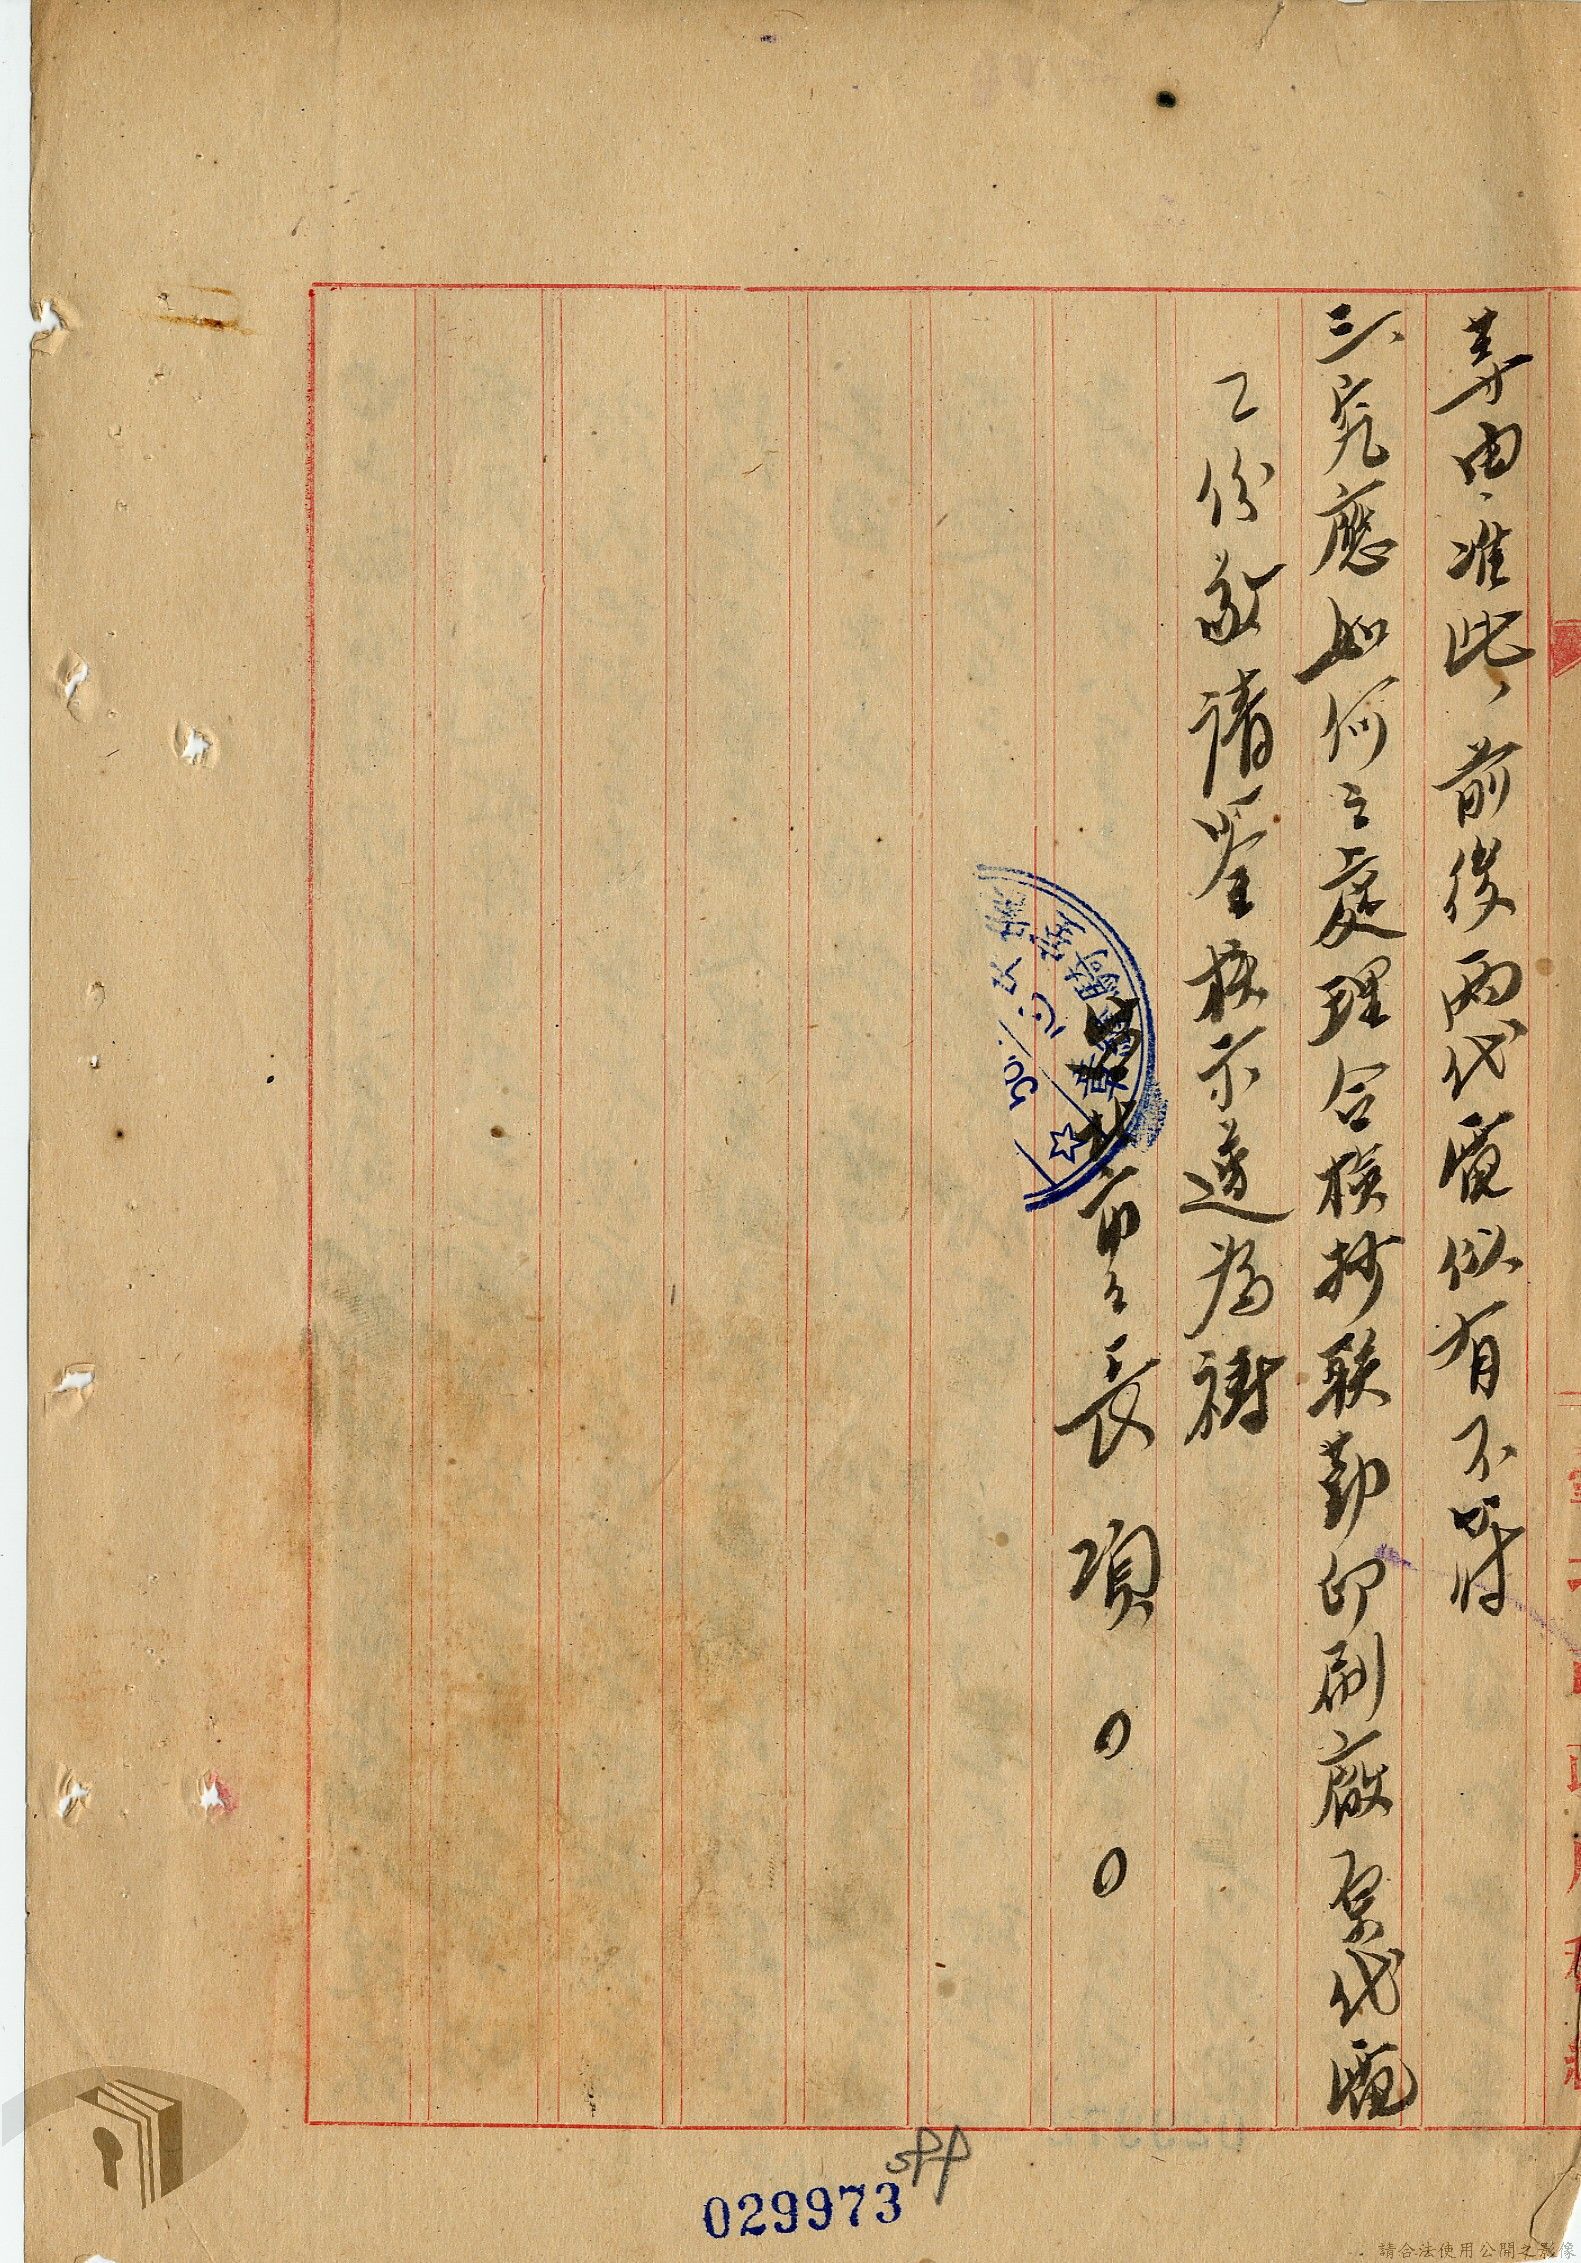 等由、准此、前後兩代電似有不符
三、究應如何之處理合檢抄聯勤印刷廠原代電
乙份敬請鑒核示遵為禱
市長項〇〇
50.
029973
請合法使用公開之影像